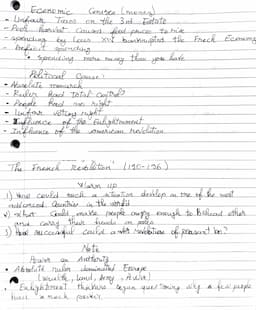 Economic Causes (money)
- Unfair Taxes on the 3rd Estate
- Poor Harvest Caused food price to rise
- spending by Louis XVI bankrupted the French Economy
- Deficit spending
• spending more money than you have
Political Cause:
- Absolute monarch
- Ruler had total control
- People had no right
- Unfair voting right
- Influence of the Enlightenment
- Influence of the American revolution
The French Revolution
Warm up
1) How could such a situation develop in one of the most advanced countries in the world
2) What could make people angry enough to behead other and carry their heads on
3) How successful could a revolution of peasant be?
Note
Power an Authority
• Absolute ruler dominated Europe
(wealth, land, Army,
• Enlightenment thinkers began questioning why a few people have so much power.